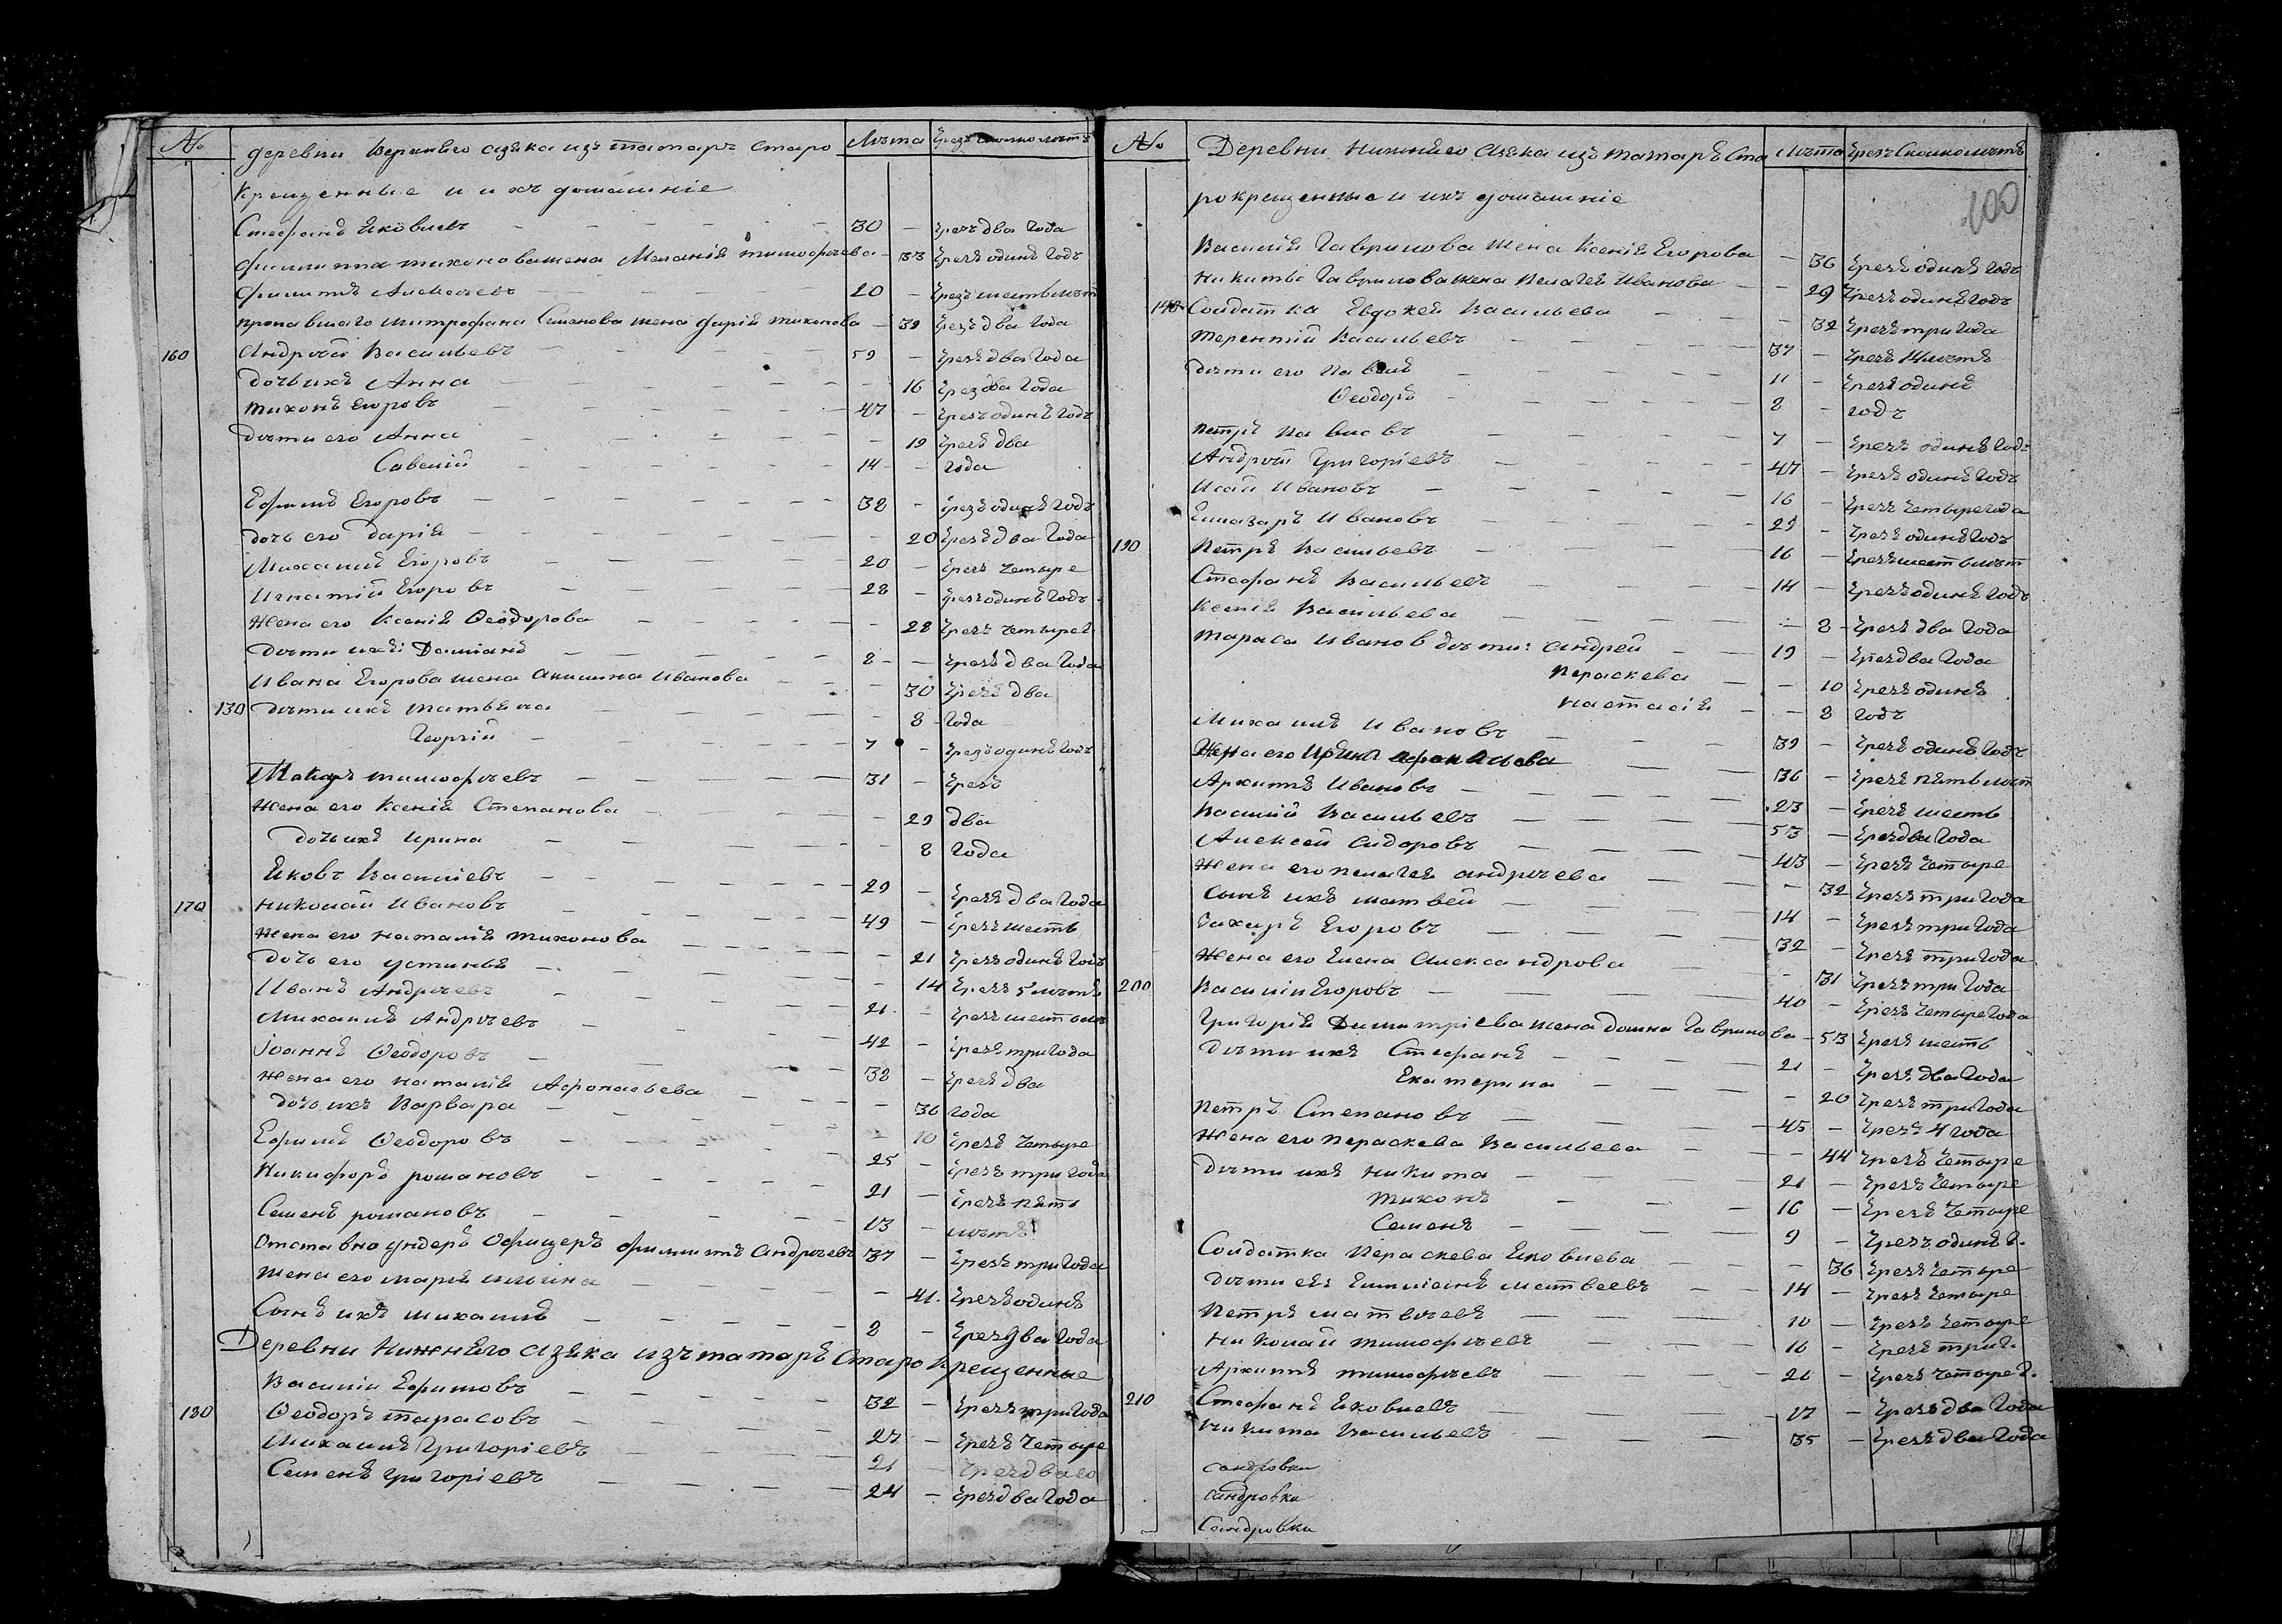 № деревни Верхнего Азяка изъ татаръ старо Лѣта Чрезъ сколко лѣтъ
крещенные и ихъ домашніе
Стефанъ Яковлевъ 30 — Чрезъ два года
Филиппа Тихонова жена Меланія Тимофѣева — 33 Чрезъ одинъ годъ
Филипъ Алексѣевъ 20 — Чрезъ шесть лѣтъ
Пропавшаго Митрофана Семенова жена Дарія Тихонова — 39 Чрезъ два года
160 Андрѣй Васильевъ 59 — Чрезъ два года
Дочь ихъ Анна — 16 Чрез два года
Тихонъ Егоровъ 47 — Чрезъ одинъ годъ
Дѣти его Анна — 19 Чрезъ два
Савелій 14 — года
Ефимъ Егоровъ 38 — Чрезъ одинъ годъ
Дочь его Дарія — 20 Чрезъ два года
Михаилъ Егоровъ 20 — Чрезъ четыре
Игнатій Егоровъ 28 — Чрезъ одинъ годъ
Жена его Ксенія Ѳеодорова — 28 Чрезъ четыре г.
Дѣти ихъ: Даміанъ 8 — Чрезъ два года
Ивана Егорова жена Акилина Иванова — 30 Чрезъ два
130 Дѣти ихъ Матвѣй — 8 года
Георгій 7 — Чрезъ одинъ годъ
Макаръ Тимофѣевъ 31 — Чрезъ
Жена его Ксенія Степанова — 29 два
Дочь ихъ Ирина — 8 года
Яковъ Василіевъ 29 — Чрезъ два года
170 Николай Ивановъ 49 — Чрезъ шесть
Жена его Наталія Тихонова — 21 Чрезъ одинъ годъ
Дочь его Устинья — 14 Чрезъ 5 лѣтъ
Иванъ Андрѣевъ 21 — Чрезъ шесть лѣтъ
Михаилъ Андрѣевъ 42 — Чрезъ три года
Іоаннъ Ѳеодоровъ 38 — Чрезъ два
Жена его Наталія Афонасьева — 36 года
Дочь ихъ Варвара — 10 Чрезъ четыре
Ефимъ Ѳеодоровъ 25 — Чрезъ три года
Никифоръ Романовъ 21 — Чрезъ пять
Семенъ Романовъ 13 — лѣтъ
Отставно ундеръ офицеръ Филиппъ Андрѣевъ 37 — Чрезъ три года
Жена его Марія Ильина — 41 Чрезъ одинъ
Сынъ ихъ Михаилъ 8 — Чрез два года
Деревни Нижнѣго Азяка изъ татаръ старо крещенные
Василіи Ефимовъ 32 — Чрезъ три года
180 Ѳеодоръ Тарасовъ 27 — Чрезъ четыре
Михаилъ Григоріевъ 21 — Чрез два го
Семенъ Григоріевъ 24 — Чрез два года
№ Деревни Нижнѣго Азяка изъ татаръ ста Лѣта Чрезъ сколко лѣтъ
рокрещенные и ихъ домашніе
100
Василія Гаврилова жена Ксенія Егорова — 36 Чрезъ одинъ годъ
Никиты Гаврилова жена Пелагея Иванова — 29 Чрезъ одинъ годъ
140 Солдатка Евдокея Васильева — 32 Чрезъ три года
Терентій Васильевъ 37 — Чрезъ 14 лѣтъ
Дѣти его Павелъ 11 — Чрезъ одинъ
Ѳеодоръ 8 — годъ
Петръ Павловъ 7 — Чрезъ одинъ годъ
Андрѣй Григоріевъ 47 — Чрезъ одинъ годъ
Исай Ивановъ 16 — Чрезъ четыре года
Елиазаръ Ивановъ 29 — Чрезъ одинъ годъ
190 Петръ Васильевъ 16 — Чрезъ шесть лѣтъ
Стефанъ Васильевъ 14 — Чрезъ одинъ годъ
Ксенія Васильева — 8 Чрезъ два года
Тараса Иванов дѣти: Андрей 19 — Чрез два года
Параскева — 10 Чрезъ одинъ
Настасія — 8 годъ
Михаилъ Ивановъ 39 — Чрезъ одинъ годъ
Жена его Ирина Афонасьева 36 — Чрезъ пять лѣт
Архипъ Ивановъ 23 — Чрезъ шесть
Василій Васильевъ 53 — Чрез два года
Алексей Сидоровъ 43 — Чрезъ четыре
Жена его Пелагея Андрѣева — 32 Чрезъ три года
Сынъ ихъ Матвей 14 — Чрезъ три года
Захаръ Егоровъ 32 — Чрезъ три года
Жена его Елена Александрова — 31 Чрезъ три года
200 Василіи Егоровъ 40 — Чрезъ четыре года
Григорія Димитріева жена Домна Гаврилова — 53 Чрезъ шесть
Дѣти ихъ Стефанъ 21 — Чрезъ два года
Екатерина — 20 Чрезъ три года
Петръ Степановъ 45 — Чрезъ 4 года
Жена его Параскева Васильева — 44 Чрезъ четыре
Дѣти ихъ Никита 21 — Чрезъ четыре
Тихонъ 16 — Чрезъ четыре
Семенъ 9 — Чрезъ одинъ г.
Солдатка Параскева Яковлева — 36 Чрезъ четыре
Дѣти ея Емиліанъ Матвеевъ 14 — Чрезъ четыре
Петръ Матвѣевъ 10 — Чрезъ четыре
Николай Тимофѣевъ 16 — Чрезъ три г.
Архипъ Тимофѣевъ 26 — Чрезъ четыре г.
210 Стефанъ Яковлевъ 17 — Чрезъ два года
Никита Васильевъ 35 — Чрезъ два года
сандровки
сандровки
Сандровки